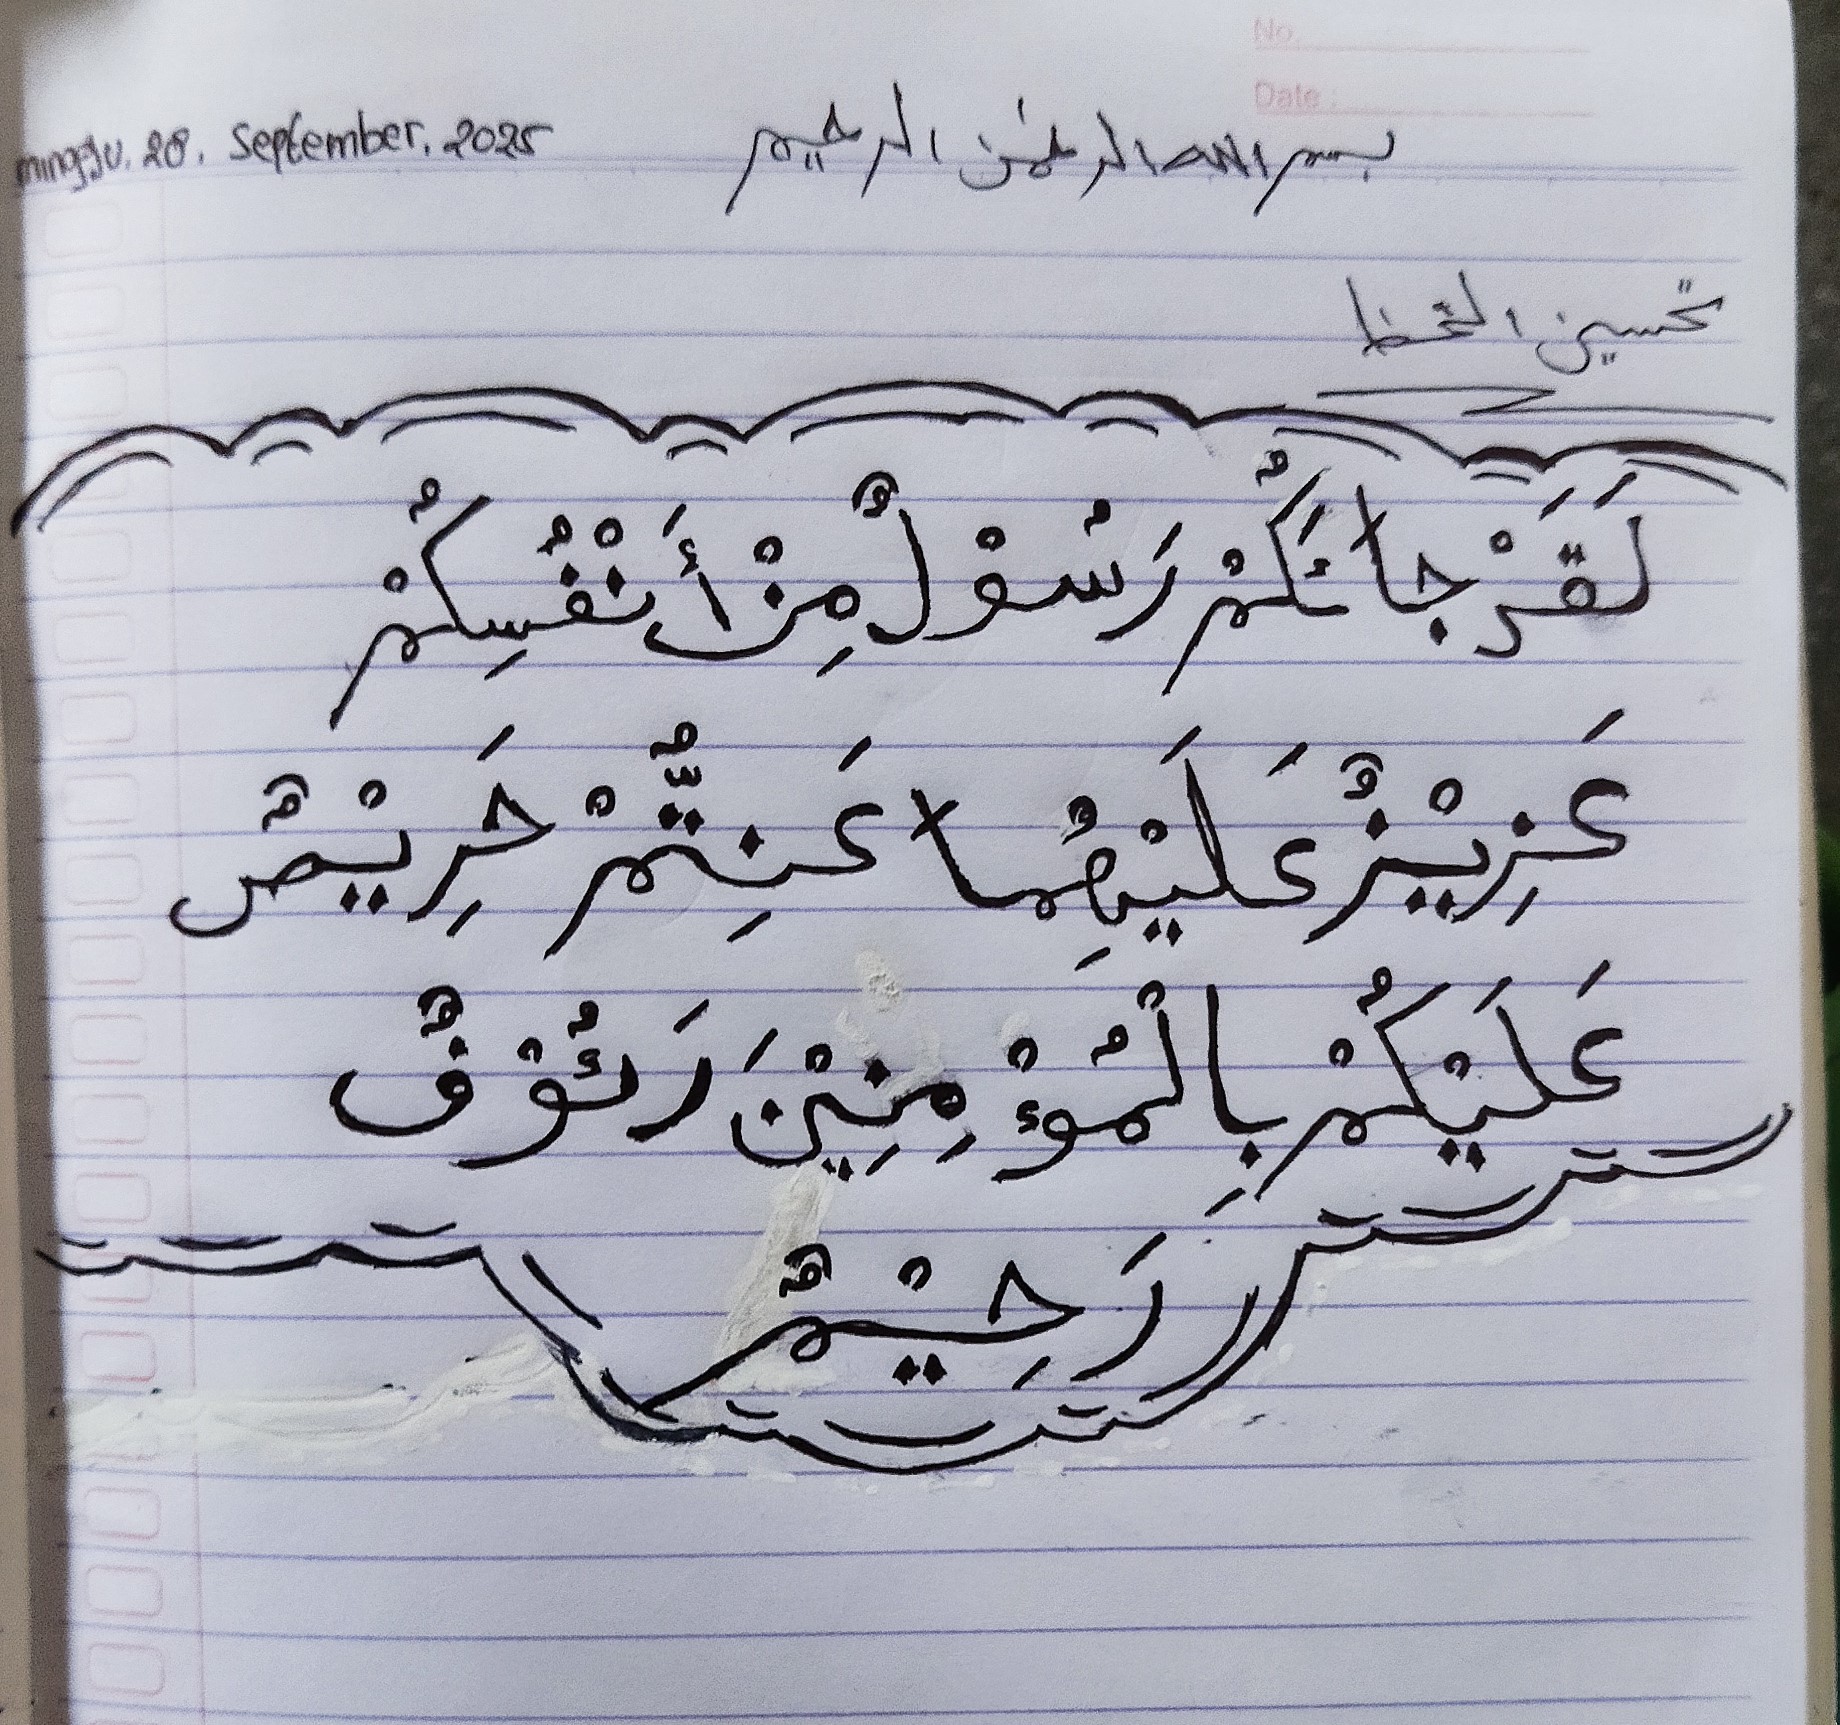 No.
Date :
minggu. 28. September. 2025
بسم الله الرحمن الرحيم
تحسين الخط
لَقَدْ جَائَكُمْ رَسُوْلٌ مِنْ أَنْفُسِكُمْ
عَزِيْزٌ عَلَيْهِمُا عَنِتُّمْ حَرِيْصٌ
عَلَيْكُمْ بِالْمُؤْمِنِيْنَ رَئُوْفٌ
رَحِيْمٌ